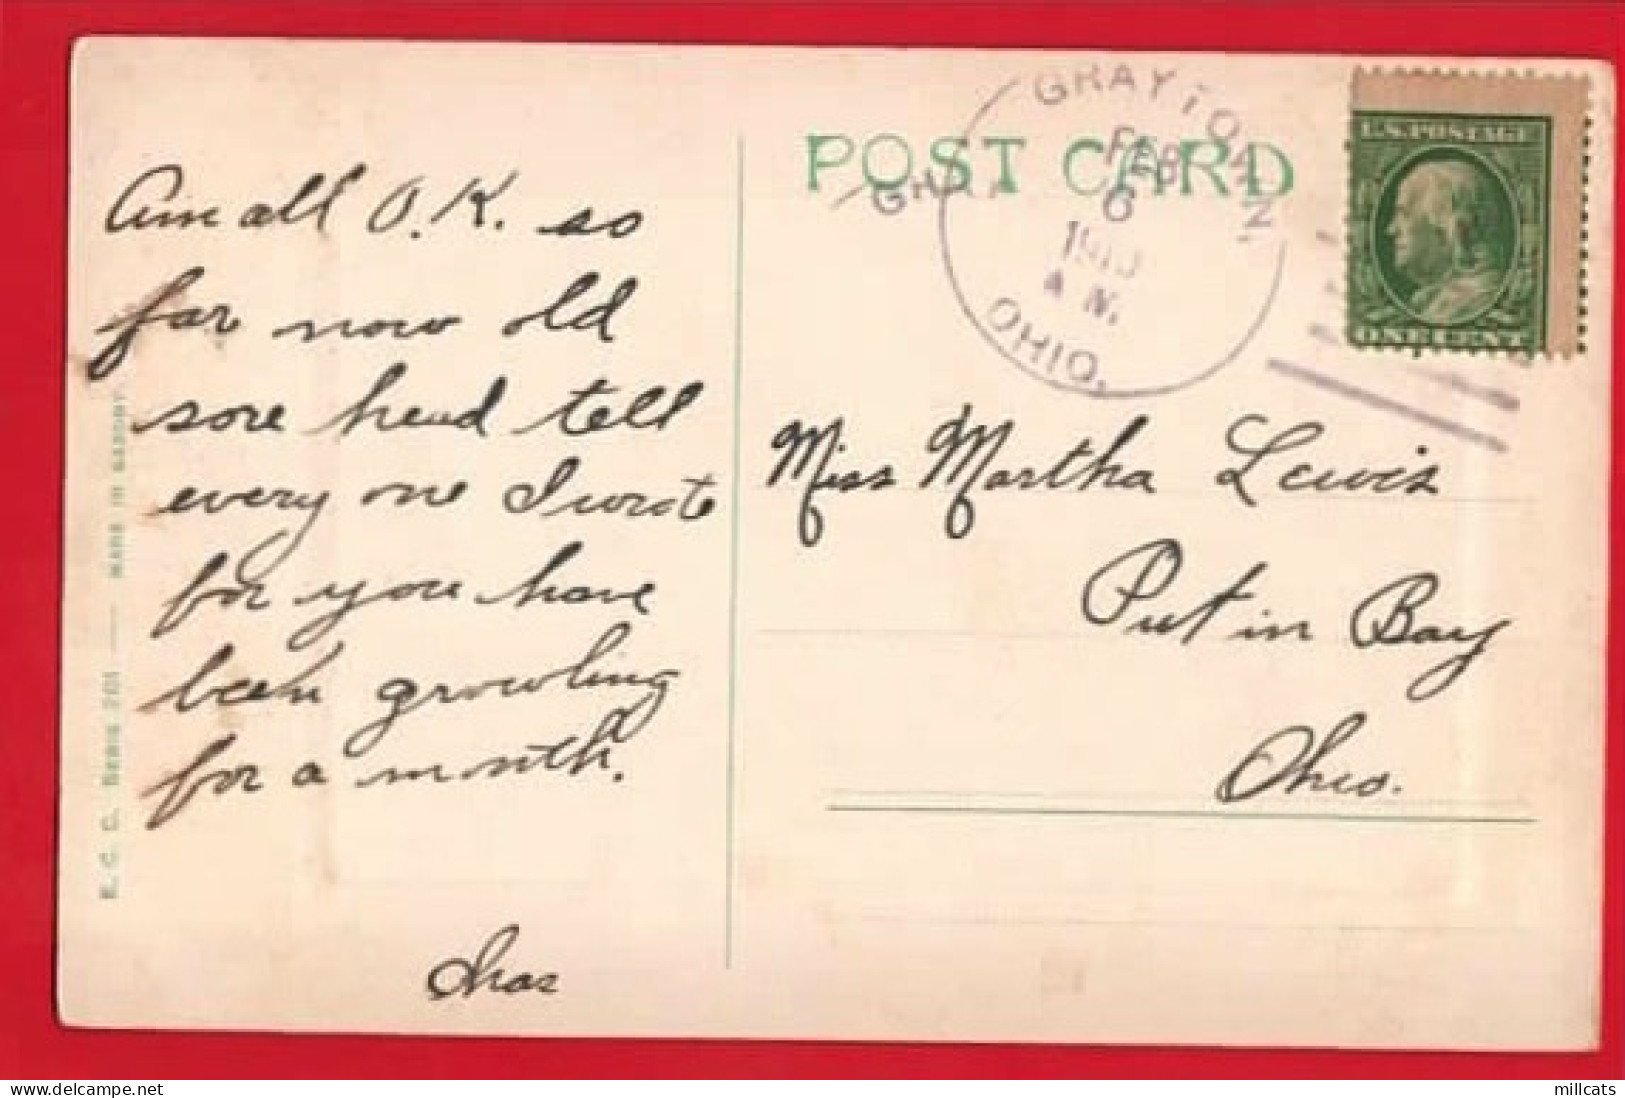 Aim all O.K. so
far now old
sore head tell
every one I wrote
for you have
been growling
for a month.
Chas
E. C. C. SERIES MADE IN GERMANY
POST CARD
GRAYTOWN,
FEB
6
A M.
OHIO.
U.S. POSTAGE
ONE CENT
Miss Martha Lewis
Put in Bay
Ohio.
millcats